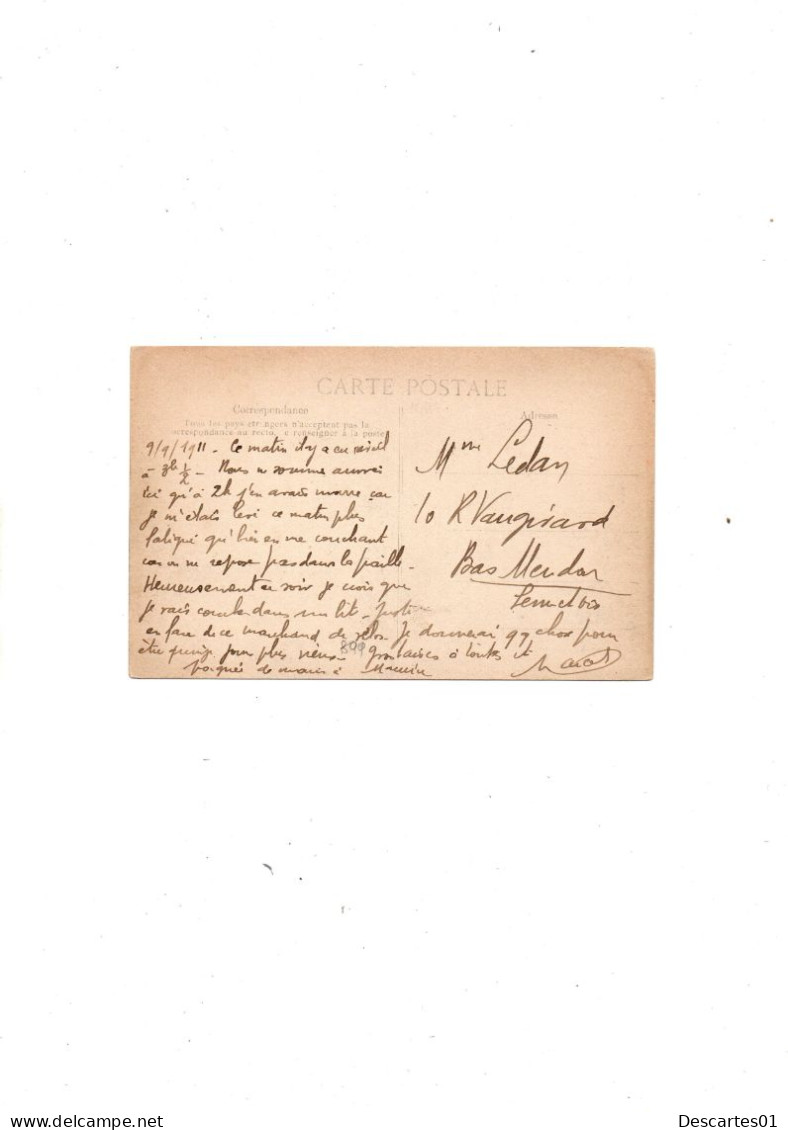 CARTE POSTALE
Correspondance
Tous les pays étrangers n'acceptent pas la
correspondance au recto. se renseigner à la poste
9/9/1911 - Ce matin il y a eu réveil
à 3h 1/2 - Nous ne somme arrivé
ici qu'à 2h j'en avais marre car
je m'étais levé ce matin plus
fatigué qu'hier en me couchant
car on ne repose pas dans la paille -
Heureusement ce soir je crois que
je vais coucher dans un lit - juste
en face de ce marchand de vélos. Je donnerai qq chose pour
être mieux pour plus vieux - Gros baisers à toutes et
poignée de main à Maurice
Marcel
899
Adresse
Mme Ledan
10 R Vaugirard
Bas Meudon
Seine et Oise
Descartes01